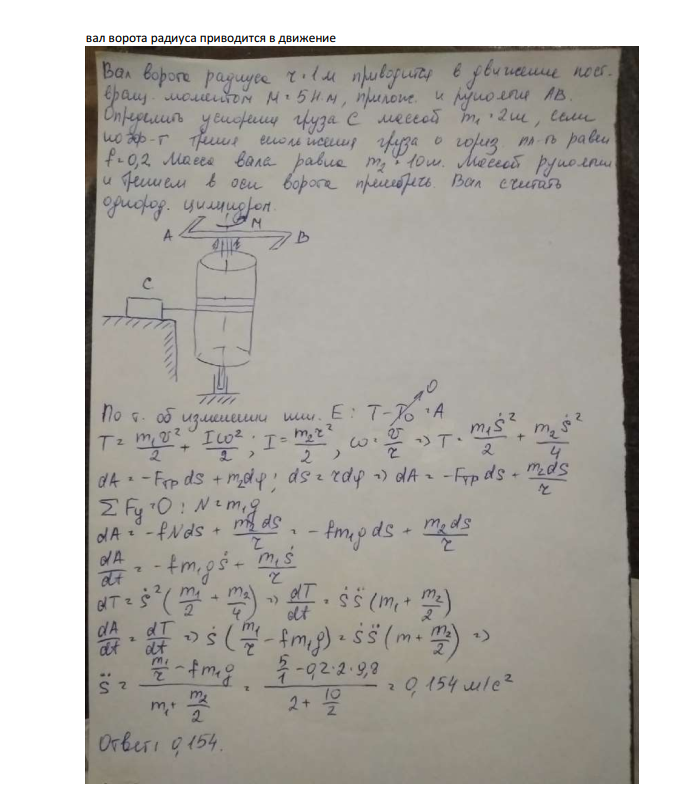 вал ворота радиуса приводится в движение
Вал ворота радиуса r = 1 м приводится в движение пост.
вращ. моментом M = 5 Н·м, прилож. к рукоятке AB.
Определить ускорение груза C массой m₁ = 2 кг, если
коэф-т трения скольжения груза о гориз. пл-ть равен
f = 0,2 Масса вала равна m₂ = 10 кг. Массой рукоятки
и трением в оси ворота пренебречь. Вал считать
однород. цилиндром.
M
A
B
C
По т. об изменении кин. E: T - T₀ = A
0
T = m₁v²/2 + Iω²/2; I = m₂r²/2, ω = v/r => T = m₁ṡ²/2 + m₂ṡ²/4
dA = -Fтр ds + m₂dφ; ds = rdφ => dA = -Fтр ds + m₂ds/r
ΣFy = 0: N = m₁g
dA = -fNds + m₂ds/r = -fm₁g ds + m₂ds/r
dA/dt = -fm₁gṡ + m₁ṡ/r
dT = ṡ²(m₁/2 + m₂/4) => dT/dt = ṡs̈(m₁ + m₂/2)
dA/dt = dT/dt => ṡ(m₁/r - fm₁g) = ṡs̈(m + m₂/2) =>
s̈ = (m₁/r - fm₁g)/(m₁ + m₂/2) = (5/1 - 0,2·2·9,8)/(2 + 10/2) = 0,154 м/с²
Ответ: 0,154.